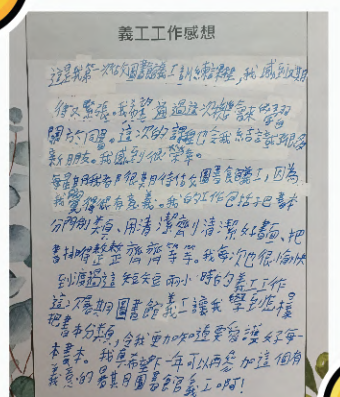 義工工作感想
這是我第一次做圖書館義工訓練課程,我感到又期
待又緊張。我希望透過這次機會來學習
關於圖書。這次的課程也令我結識到很多
新朋友。我感到很榮幸。
每星期我都很期待做圖書館義工,因為
我覺得很有意義。我的工作包括把書本
分門別類、用清潔劑清潔紅書面、把
書排得整整齊齊等等。我每次也很愉快
到渡過這短短兩小時的義工工作
這次暑期圖書館義工讓我學到怎樣
把書本分類,令我更加知道要愛護好每一
本書本。我真希望下一年可以再參加這個有
義意的暑期圖書館義工啊!